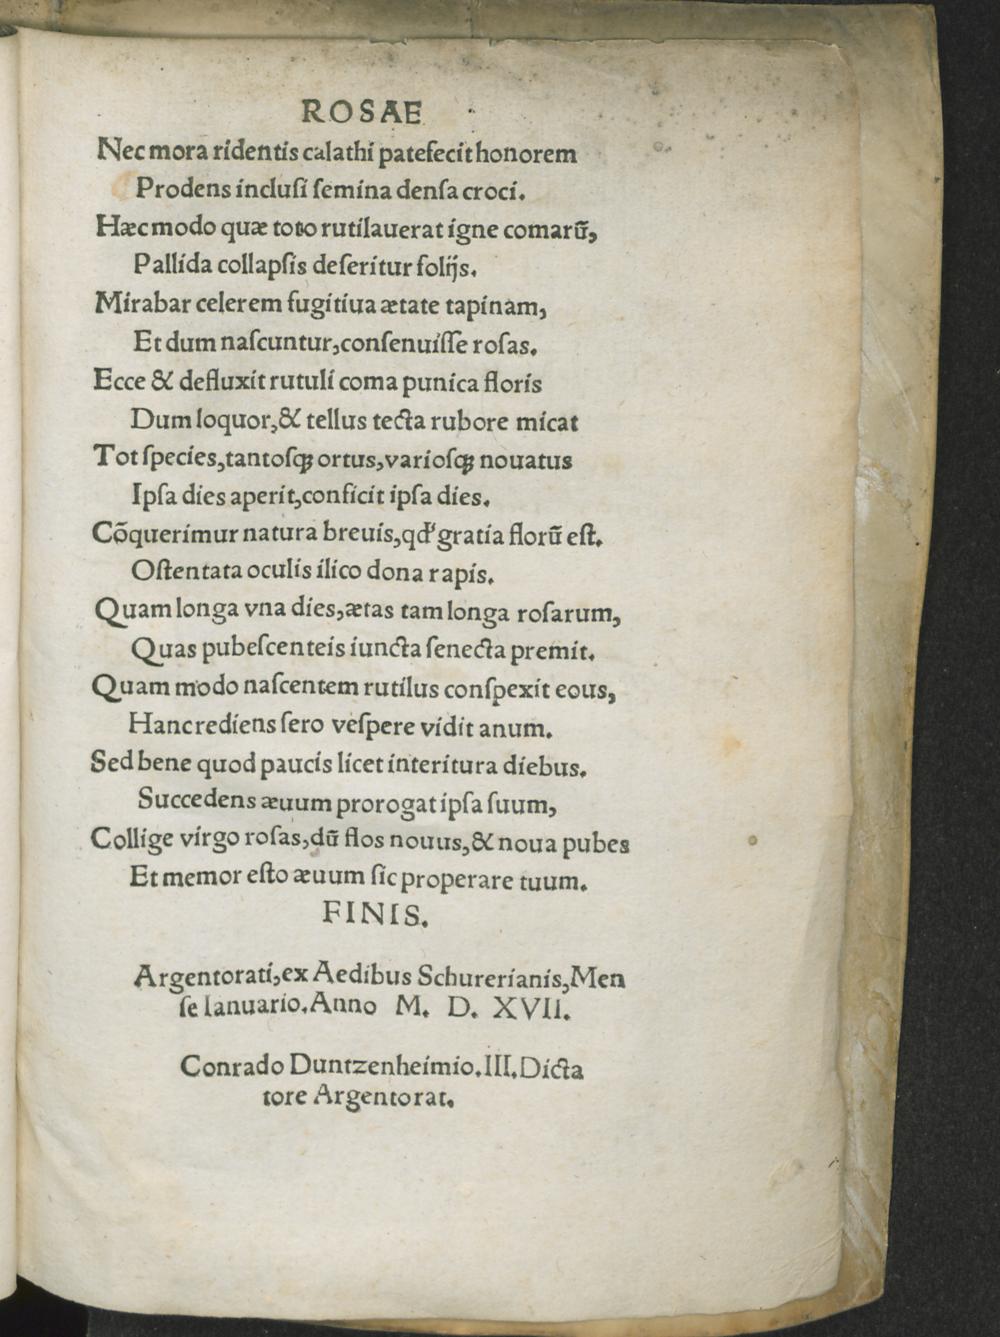 ROSAE
Nec mora ridentis calathi patefecit honorem
Prodens inclusi ſemina denſa croci.
Hæc modo quæ toto rutilauerat igne comarũ,
Pallida collapſis deſeritur folijs.
Mirabar celerem fugitiua ætate tapinam,
Et dum naſcuntur, conſenuiſſe roſas.
Ecce & defluxit rutuli coma punica floris
Dum loquor, & tellus tecta rubore micat
Tot ſpecies, tantoſqꝫ ortus, varioſqꝫ nouatus
Ipſa dies aperit, conficit ipſa dies.
Cõquerimur natura breuis, qđ gratia florũ eſt.
Oſtentata oculis ilico dona rapis.
Quam longa vna dies, ætas tam longa roſarum,
Quas pubeſcenteis iuncta ſenecta premit.
Quam modo naſcentem rutilus conſpexit eous,
Hanc rediens ſero veſpere vidit anum.
Sed bene quod paucis licet interitura diebus.
Succedens æuum prorogat ipſa ſuum,
Collige virgo roſas, dũ flos nouus, & noua pubes
Et memor eſto æuum ſic properare tuum.
FINIS.
Argentorati, ex Aedibus Schurerianis, Men
ſe Ianuario. Anno M. D. XVII.
Conrado Duntzenheimio. III. Dicta
tore Argentorat.